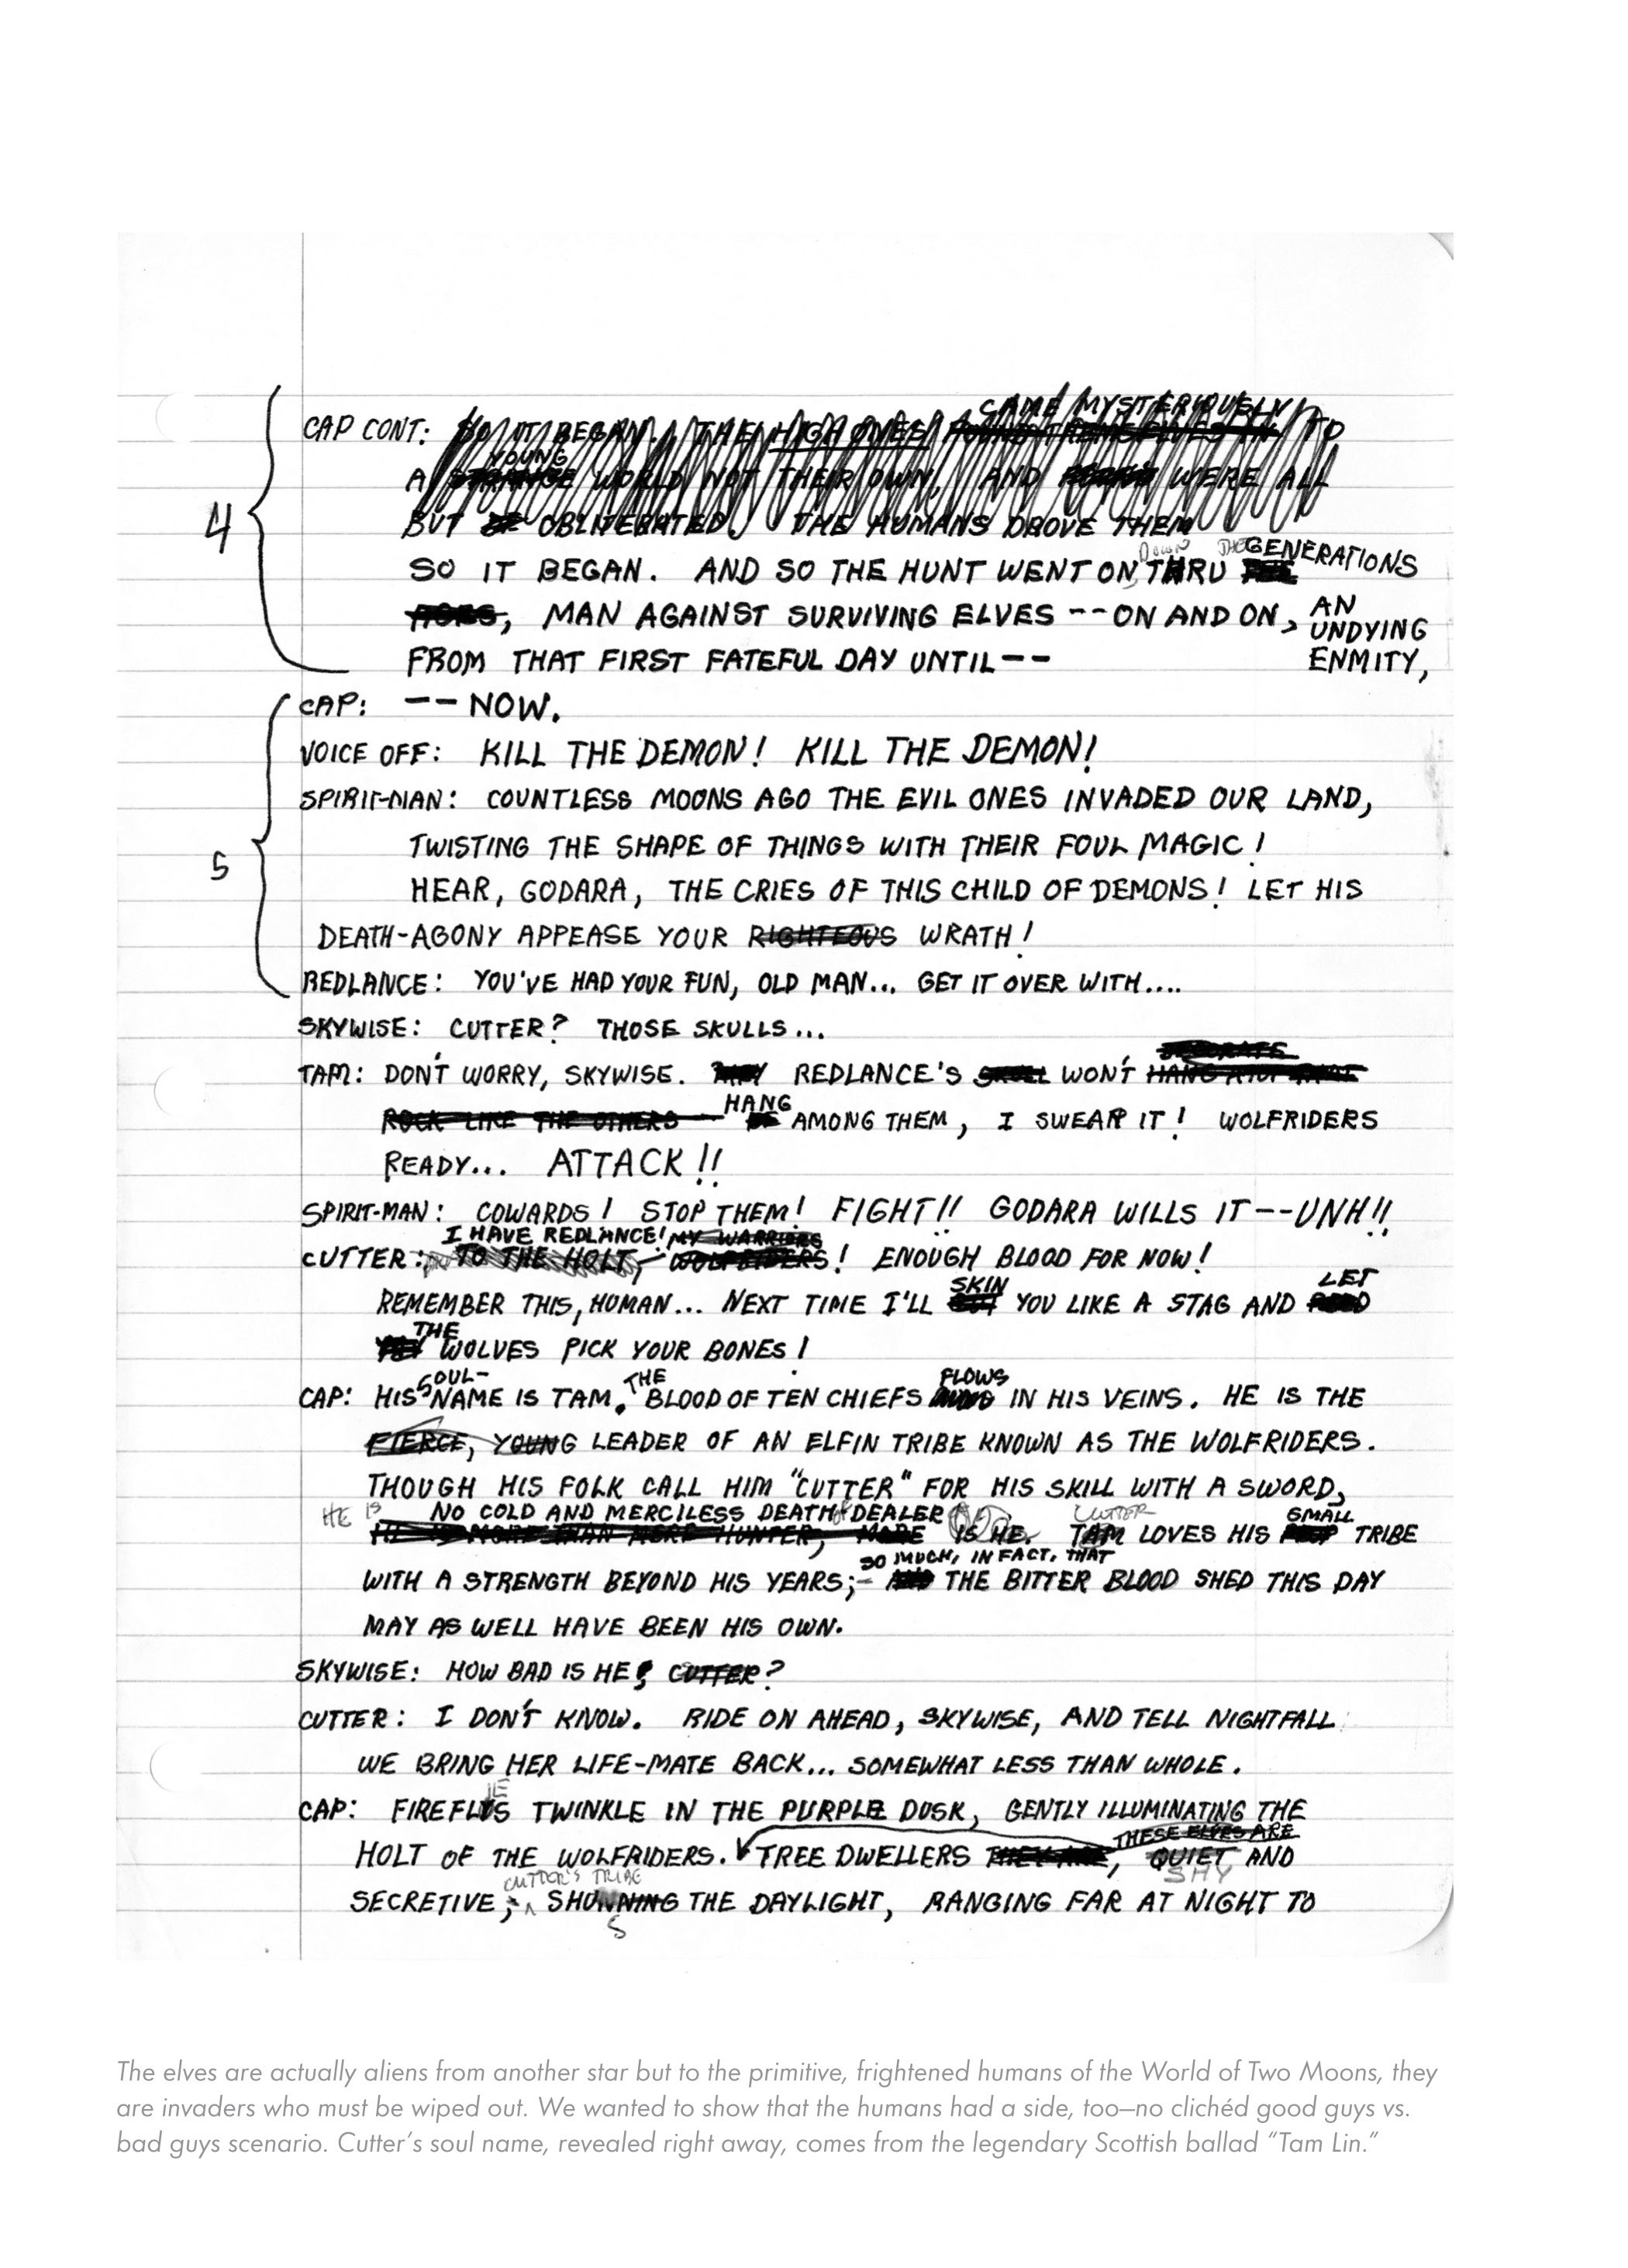 CAME MYSTERIOUSLY
CAP CONT: SO IT BEGAN. THE HIGH ONES FOUND THEMSELVES IN TO
YOUNG
A STRANGE WORLD NOT THEIR OWN, AND WERE ALL
BUT OBLITERATED. THE HUMANS DROVE THEM
DOWN THE GENERATIONS
4 SO IT BEGAN. AND SO THE HUNT WENT ON, THRU
AGES, MAN AGAINST SURVIVING ELVES -- ON AND ON, AN UNDYING ENMITY,
FROM THAT FIRST FATEFUL DAY UNTIL --
CAP: -- NOW.
VOICE OFF: KILL THE DEMON! KILL THE DEMON!
SPIRIT-MAN: COUNTLESS MOONS AGO THE EVIL ONES INVADED OUR LAND,
5 TWISTING THE SHAPE OF THINGS WITH THEIR FOUL MAGIC!
HEAR, GODARA, THE CRIES OF THIS CHILD OF DEMONS! LET HIS
DEATH-AGONY APPEASE YOUR RIGHTEOUS WRATH!
REDLANCE: YOU'VE HAD YOUR FUN, OLD MAN... GET IT OVER WITH....
SKYWISE: CUTTER? THOSE SKULLS...
TAM: DON'T WORRY, SKYWISE. REDLANCE'S SKULL WON'T HANG
ROCK LIKE THE OTHERS HANG AMONG THEM, I SWEAR IT! WOLFRIDERS
READY... ATTACK!!
SPIRIT-MAN: COWARDS! STOP THEM! FIGHT!! GODARA WILLS IT -- UNH!!
I HAVE REDLANCE! MY WARRIORS
CUTTER: TO THE HOLT, WOLFRIDERS! ENOUGH BLOOD FOR NOW!
SKIN LET
REMEMBER THIS, HUMAN... NEXT TIME I'LL YOU LIKE A STAG AND
THE WOLVES PICK YOUR BONES!
SOUL- THE FLOWS
CAP: HIS NAME IS TAM. BLOOD OF TEN CHIEFS IN HIS VEINS. HE IS THE
FIERCE, YOUNG LEADER OF AN ELFIN TRIBE KNOWN AS THE WOLFRIDERS.
THOUGH HIS FOLK CALL HIM "CUTTER" FOR HIS SKILL WITH A SWORD,
HE IS NO COLD AND MERCILESS DEATH-DEALER CUTTER SMALL
HE IS MORE THAN MERE HUNTER, MORE IS HE. TAM LOVES HIS TRIBE
SO MUCH, IN FACT, THAT
WITH A STRENGTH BEYOND HIS YEARS; - AND THE BITTER BLOOD SHED THIS DAY
MAY AS WELL HAVE BEEN HIS OWN.
SKYWISE: HOW BAD IS HE, CUTTER?
CUTTER: I DON'T KNOW. RIDE ON AHEAD, SKYWISE, AND TELL NIGHTFALL
WE BRING HER LIFE-MATE BACK... SOMEWHAT LESS THAN WHOLE.
IE
CAP: FIREFLYS TWINKLE IN THE PURPLE DUSK, GENTLY ILLUMINATING THE
THESE ELVES ARE
HOLT OF THE WOLFRIDERS. TREE DWELLERS THEY ARE, QUIET AND
CUTTER'S TRIBE SHY
SECRETIVE; SHUNNING THE DAYLIGHT, RANGING FAR AT NIGHT TO
S
The elves are actually aliens from another star but to the primitive, frightened humans of the World of Two Moons, they
are invaders who must be wiped out. We wanted to show that the humans had a side, too—no clichéd good guys vs.
bad guys scenario. Cutter's soul name, revealed right away, comes from the legendary Scottish ballad "Tam Lin."